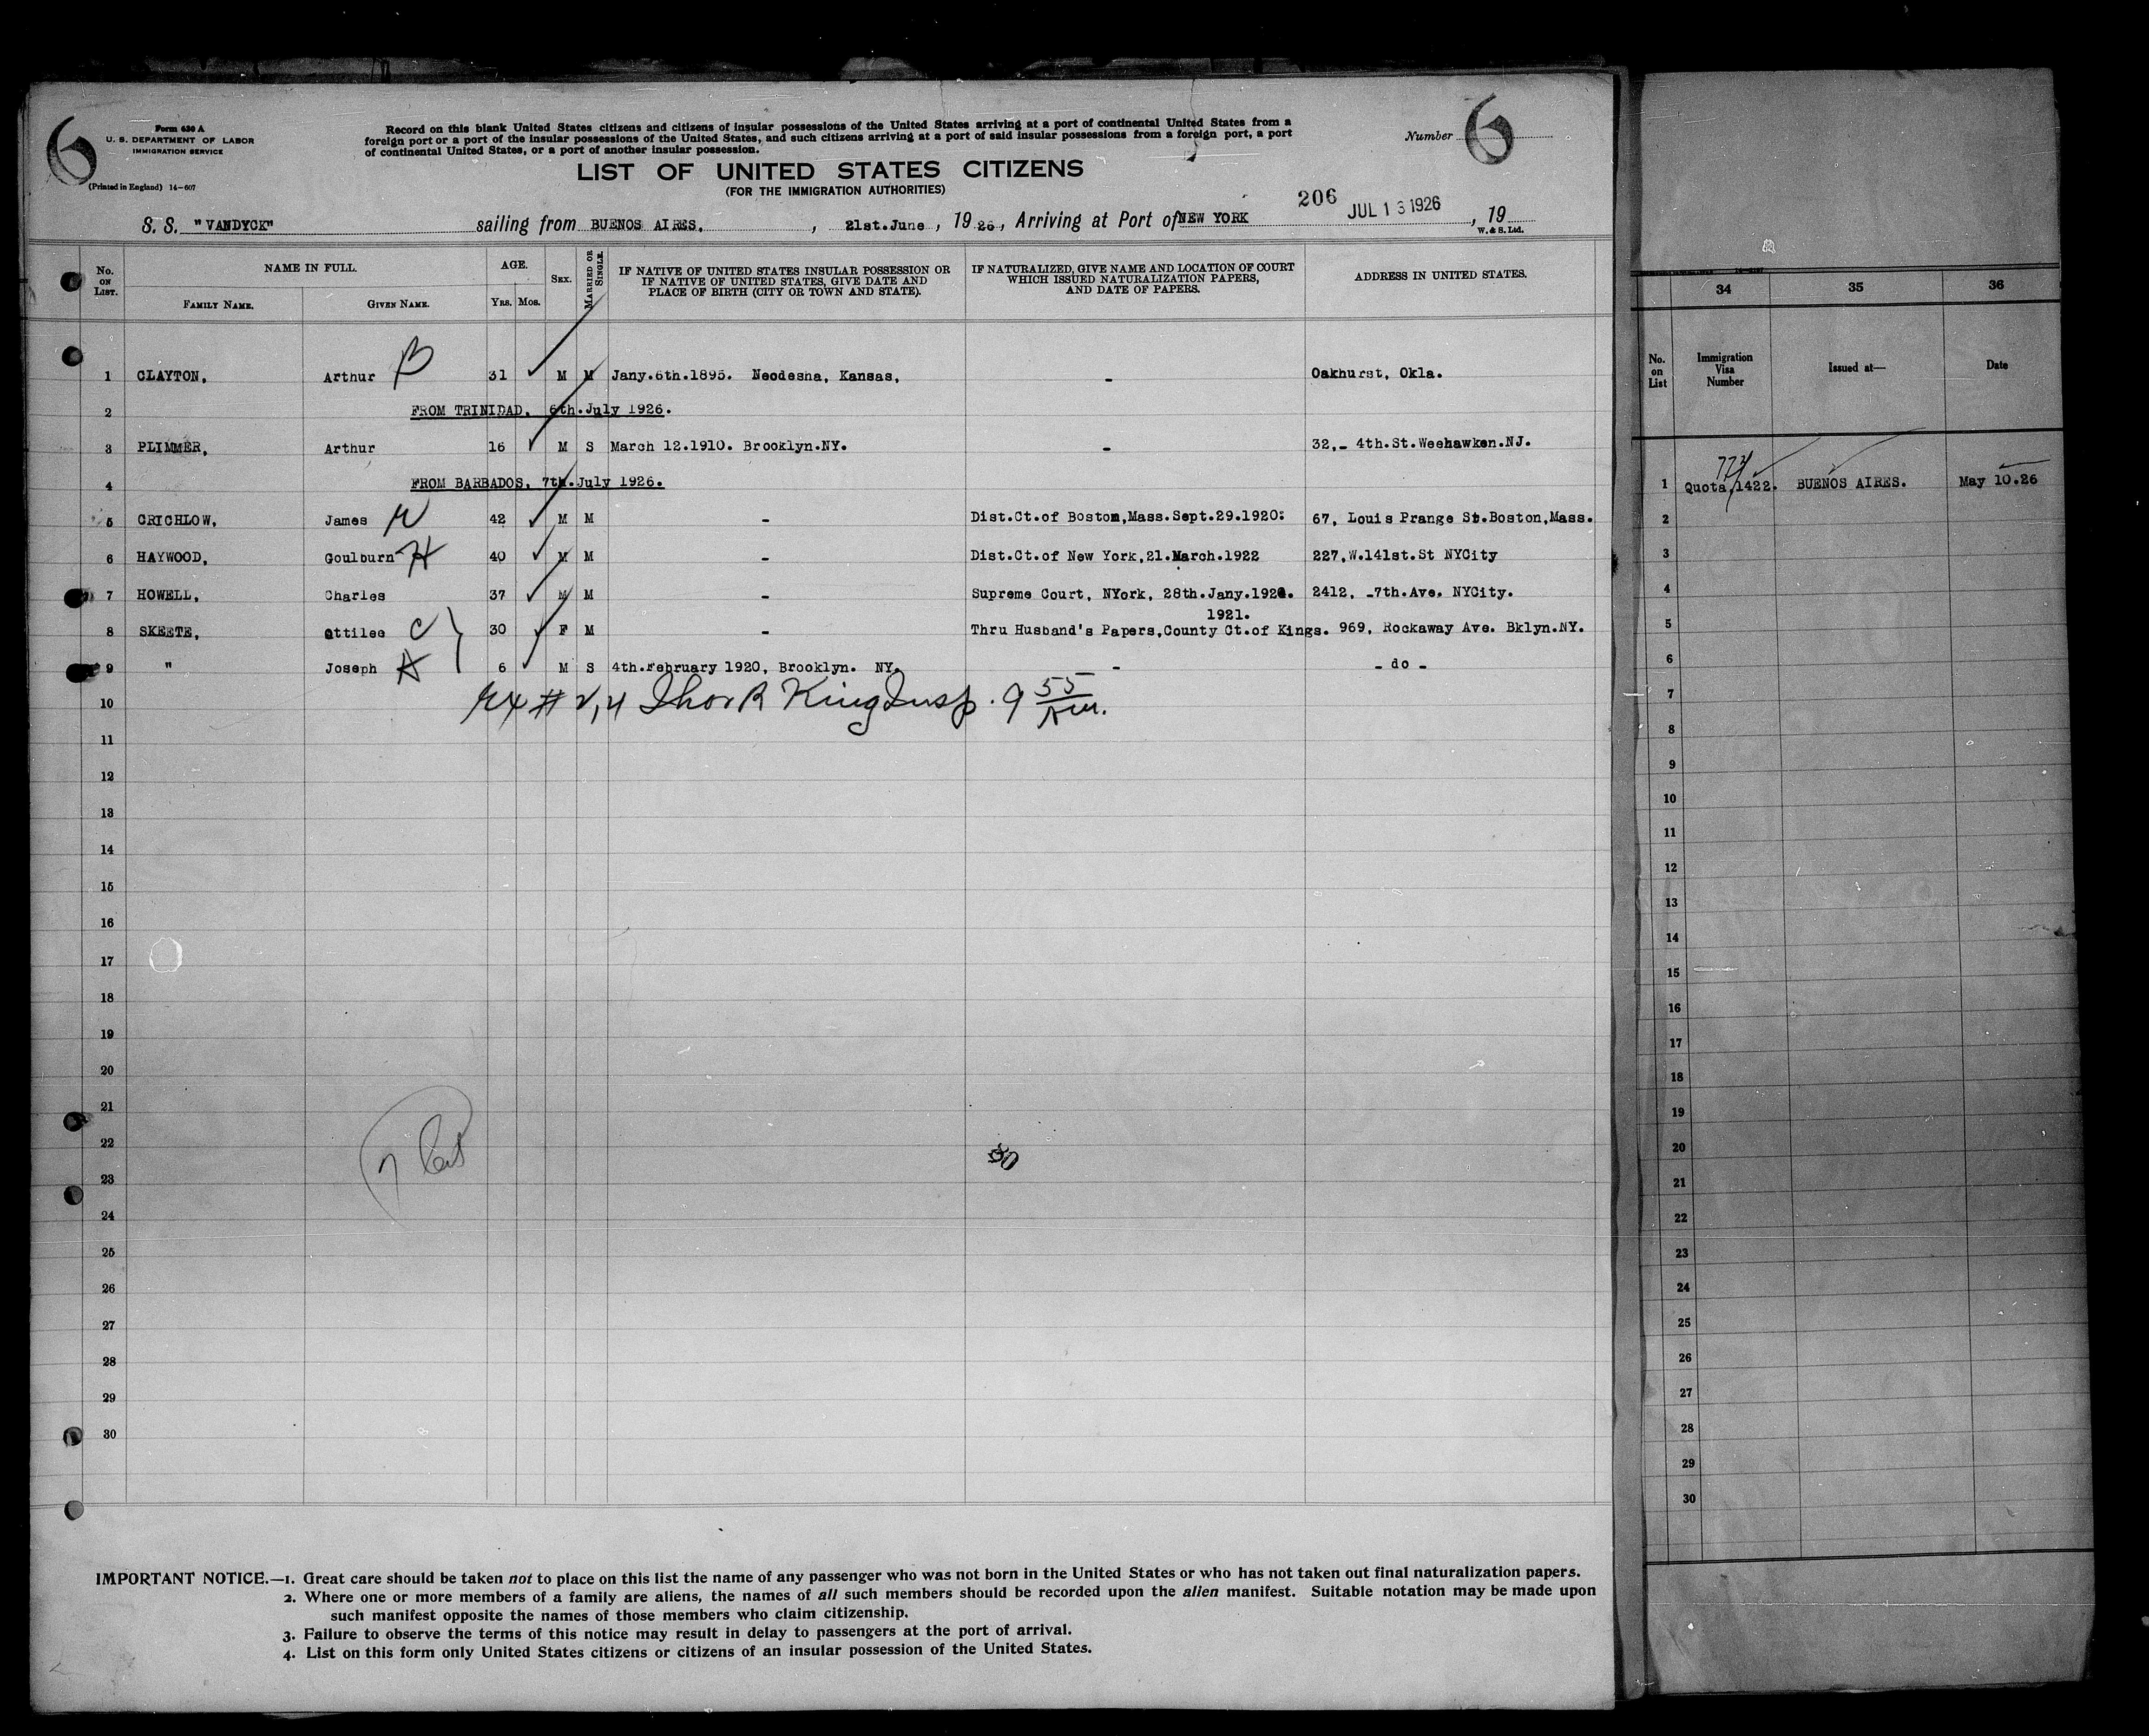 6
Form 630 A
U. S. DEPARTMENT OF LABOR
IMMIGRATION SERVICE
(Printed in England) 14-607
Record on this blank United States citizens and citizens of insular possessions of the United States arriving at a port of continental United States from a
foreign port or a port of the insular possessions of the United States, and such citizens arriving at a port of said insular possessions from a foreign port, a port
of continental United States, or a port of another insular possession.
Number 6
LIST OF UNITED STATES CITIZENS
(FOR THE IMMIGRATION AUTHORITIES)
206 JUL 13 1926
S. S. "VANDYCK" sailing from BUENOS AIRES. , 21st.June , 19 26 , Arriving at Port of NEW YORK , 19
W. & S. Ltd.
No. ON LIST. NAME IN FULL. FAMILY NAME. GIVEN NAME. AGE. YRS. MOS. SEX. MARRIED OR SINGLE. IF NATIVE OF UNITED STATES INSULAR POSSESSION OR IF NATIVE OF UNITED STATES, GIVE DATE AND PLACE OF BIRTH (CITY OR TOWN AND STATE). IF NATURALIZED, GIVE NAME AND LOCATION OF COURT WHICH ISSUED NATURALIZATION PAPERS, AND DATE OF PAPERS. ADDRESS IN UNITED STATES.
1 CLAYTON, Arthur B 31 M M Jany.6th.1895. Neodesha, Kansas, - Oakhurst, Okla.
2 FROM TRINIDAD, 6th.July 1926.
3 PLIMMER, Arthur 16 M S March 12.1910. Brooklyn.NY. - 32,- 4th.St.Weehawken.NJ.
4 FROM BARBADOS, 7th.July 1926.
5 CRICHLOW, James 42 M M - Dist.Ct.of Boston,Mass.Sept.29.1920: 67, Louis Prange St.Boston,Mass.
6 HAYWOOD, Goulburn H 40 M M - Dist.Ct.of New York,21.March.1922 227,W.141st.St NYCity
7 HOWELL, Charles 37 M M - Supreme Court, NYork, 28th.Jany.192 . 2412, -7th.Ave. NYCity.
1921.
8 SKEETE, Ottilee C 30 F M - Thru Husband's Papers,County Ct.of Kings. 969, Rockaway Ave. Bklyn.NY.
9 " Joseph 6 M S 4th.February 1920, Brooklyn. NY. - - do -
10 King Insp. 9 55 Am.
11
12
13
14
15
16
17
18
19
20
21
22
23
24
25
26
27
28
29
30
IMPORTANT NOTICE.—1. Great care should be taken not to place on this list the name of any passenger who was not born in the United States or who has not taken out final naturalization papers.
2. Where one or more members of a family are aliens, the names of all such members should be recorded upon the alien manifest. Suitable notation may be made upon
such manifest opposite the names of those members who claim citizenship.
3. Failure to observe the terms of this notice may result in delay to passengers at the port of arrival.
4. List on this form only United States citizens or citizens of an insular possession of the United States.
34 35 36
No. on List Immigration Visa Number Issued at— Date
1 Quota,1422. BUENOS AIRES. May 10.26
2
3
4
5
6
7
8
9
10
11
12
13
14
15
16
17
18
19
20
21
22
23
24
25
26
27
28
29
30